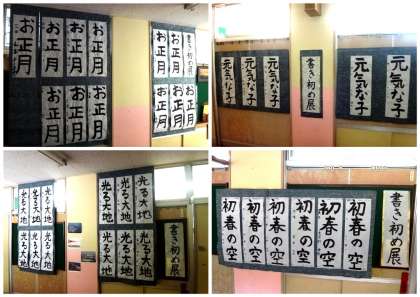 お正月
お正月
お正月
お正月
お正月
お正月
お正月
お正月
お正月
書き初め展
お正月
お正月
お正月
元気な子
元気な子
元気な子
書き初め展
元気な子
元気な子
光る大地
光る大地
光る大地
光る大地
光る大地
光る大地
光る大地
光る大地
光る大地
光る大地
光る大地
光る大地
書き初め展
初春の空
初春の空
初春の空
初春の空
初春の空
初春の空
書き初め展